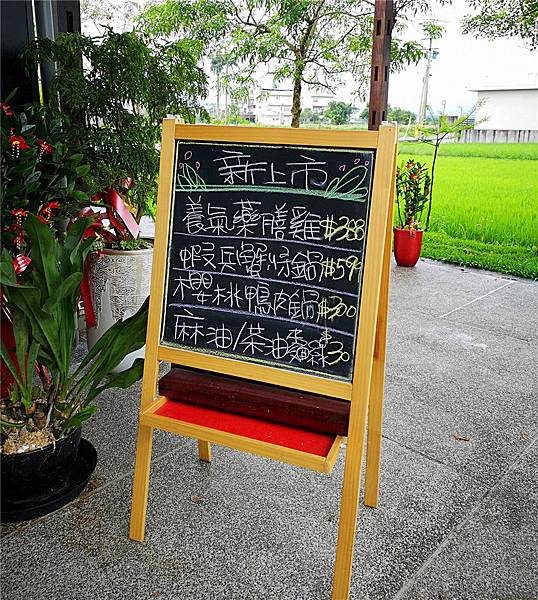 新上市
養氣藥膳雞$388
蝦兵蟹仔鍋$599
櫻桃鴨肉鍋$300
麻油/茶油麵線$30